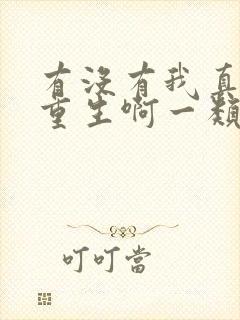 有没有我真
重生啊一类
叮叮當